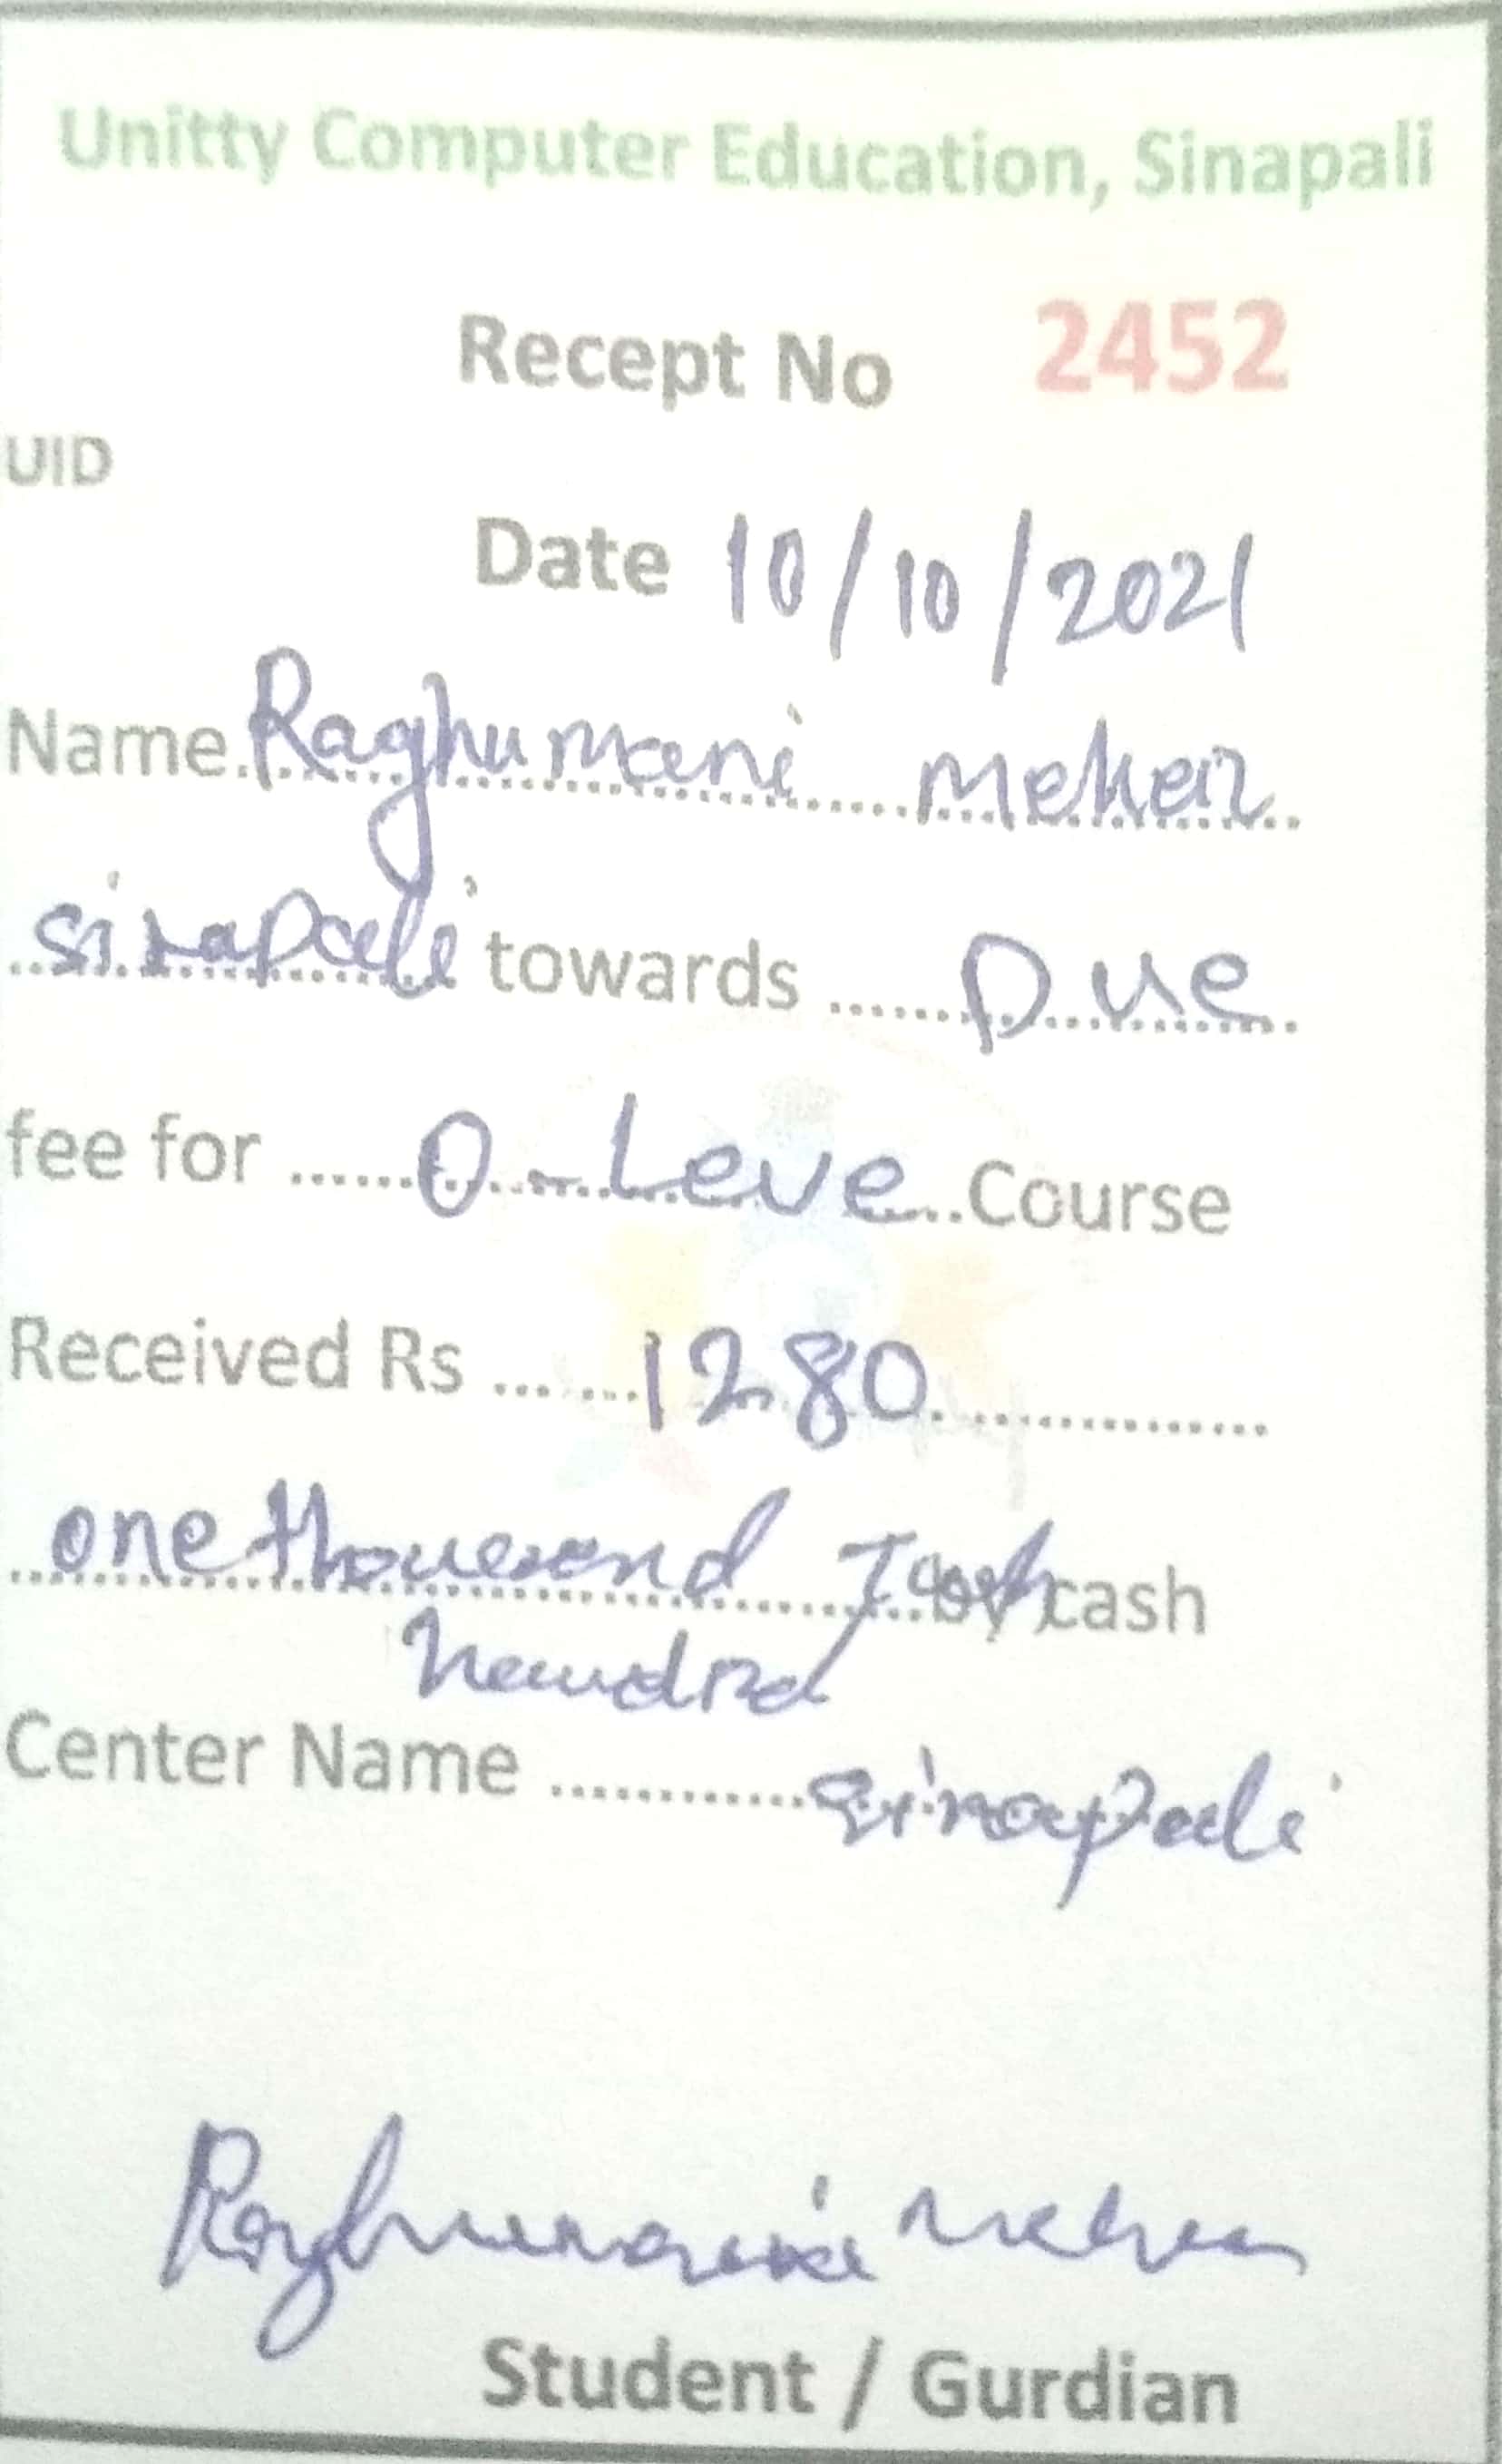 Unitty Computer Education, Sinapali
Recept No 2452
UID
Date 10/10/2021
Name Raghumani Meher
sinapali towards Due
fee for O-Leve Course
Received Rs 1280
one thousand by cash
Center Name Sinapali
Raghumani Meher
Student / Gurdian